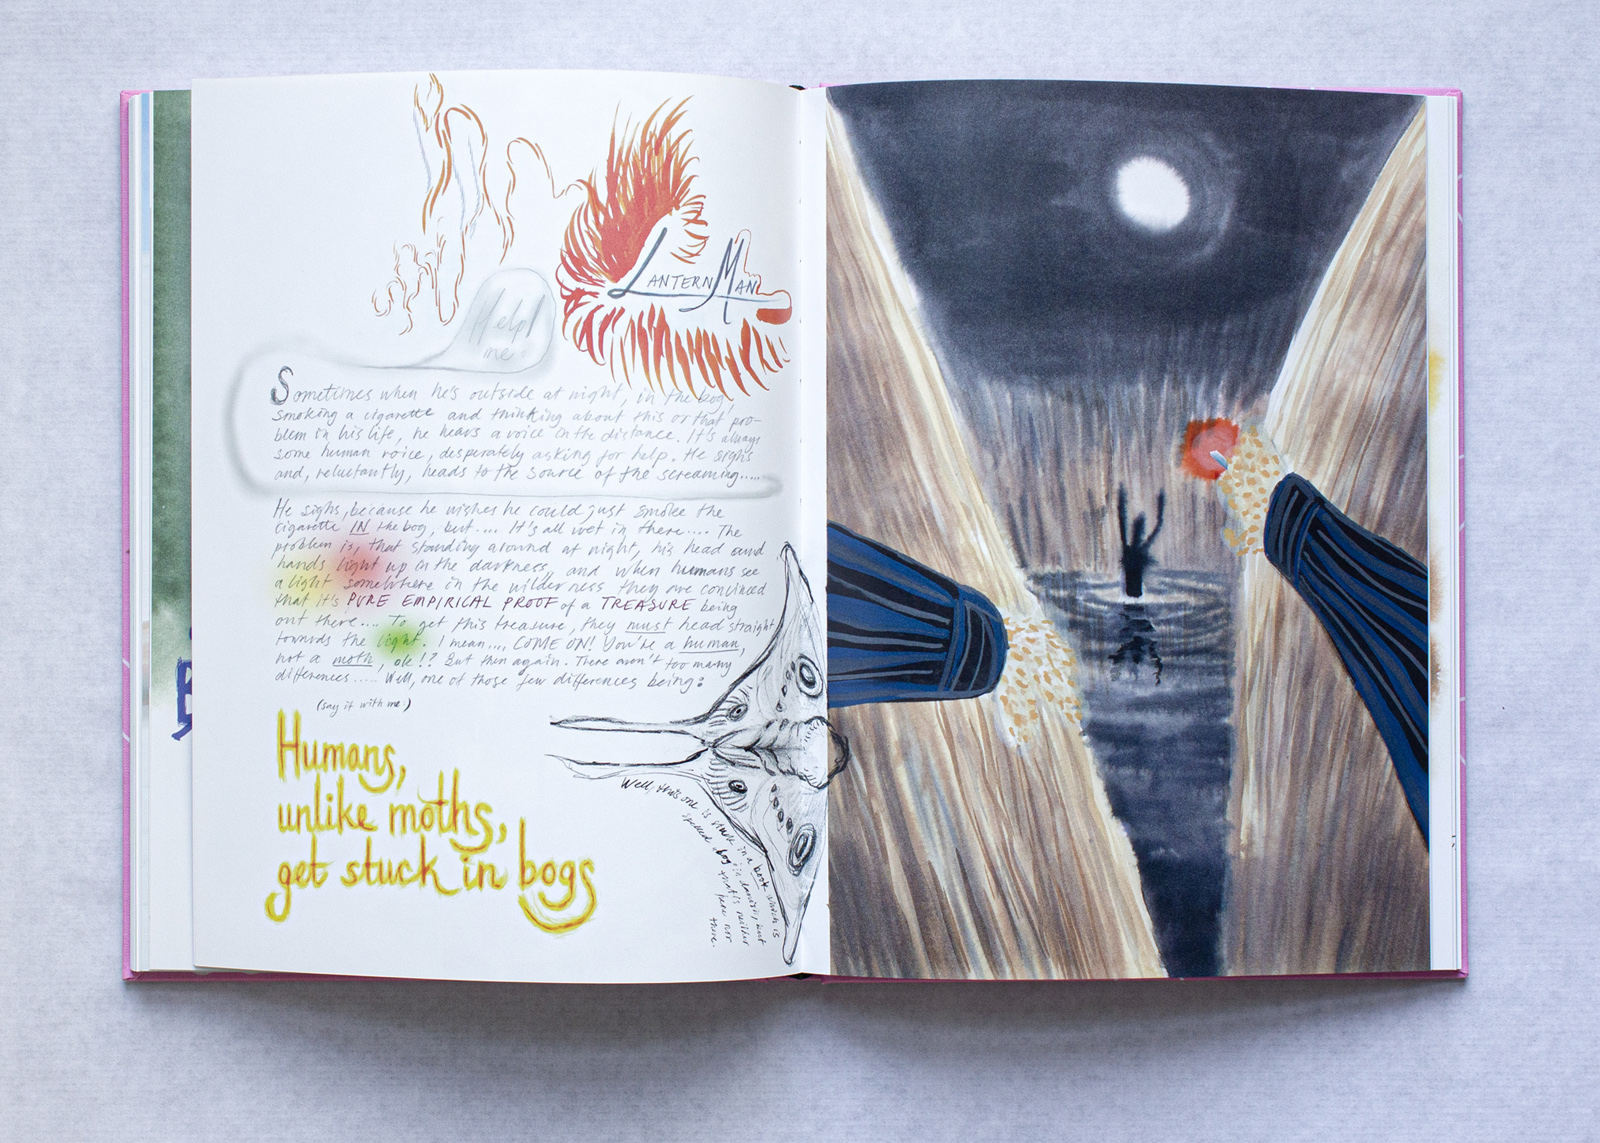 Lantern Man
Help!
me
Sometimes when he's outside at night, in the bog,
smoking a cigarette and thinking about this or that pro-
blem in his life, he hears a voice in the distance. It's always
some human voice, desperately asking for help. He sighs
and, reluctantly, heads to the source of the screaming.....
He sighs, because he wishes he could just smoke the
cigarette IN the bog, but.... It's all wet in there.... The
problem is, that standing around at night, his head and
hands light up in the darkness, and when humans see
a light somewhere in the wilderness they are convinced
that it's PURE EMPIRICAL PROOF of a TREASURE being
out there.... To get this treasure, they must head straight
towards the light. I mean.... COME ON! You're a human,
not a moth, ok!? But then again. There aren't too many
differences..... Well, one of those few differences being:
(say it with me:)
Humans,
unlike moths,
get stuck in bogs
Well, this one is stuck in a book which is
spelled bog in danish, but
that's neither
here nor
there.